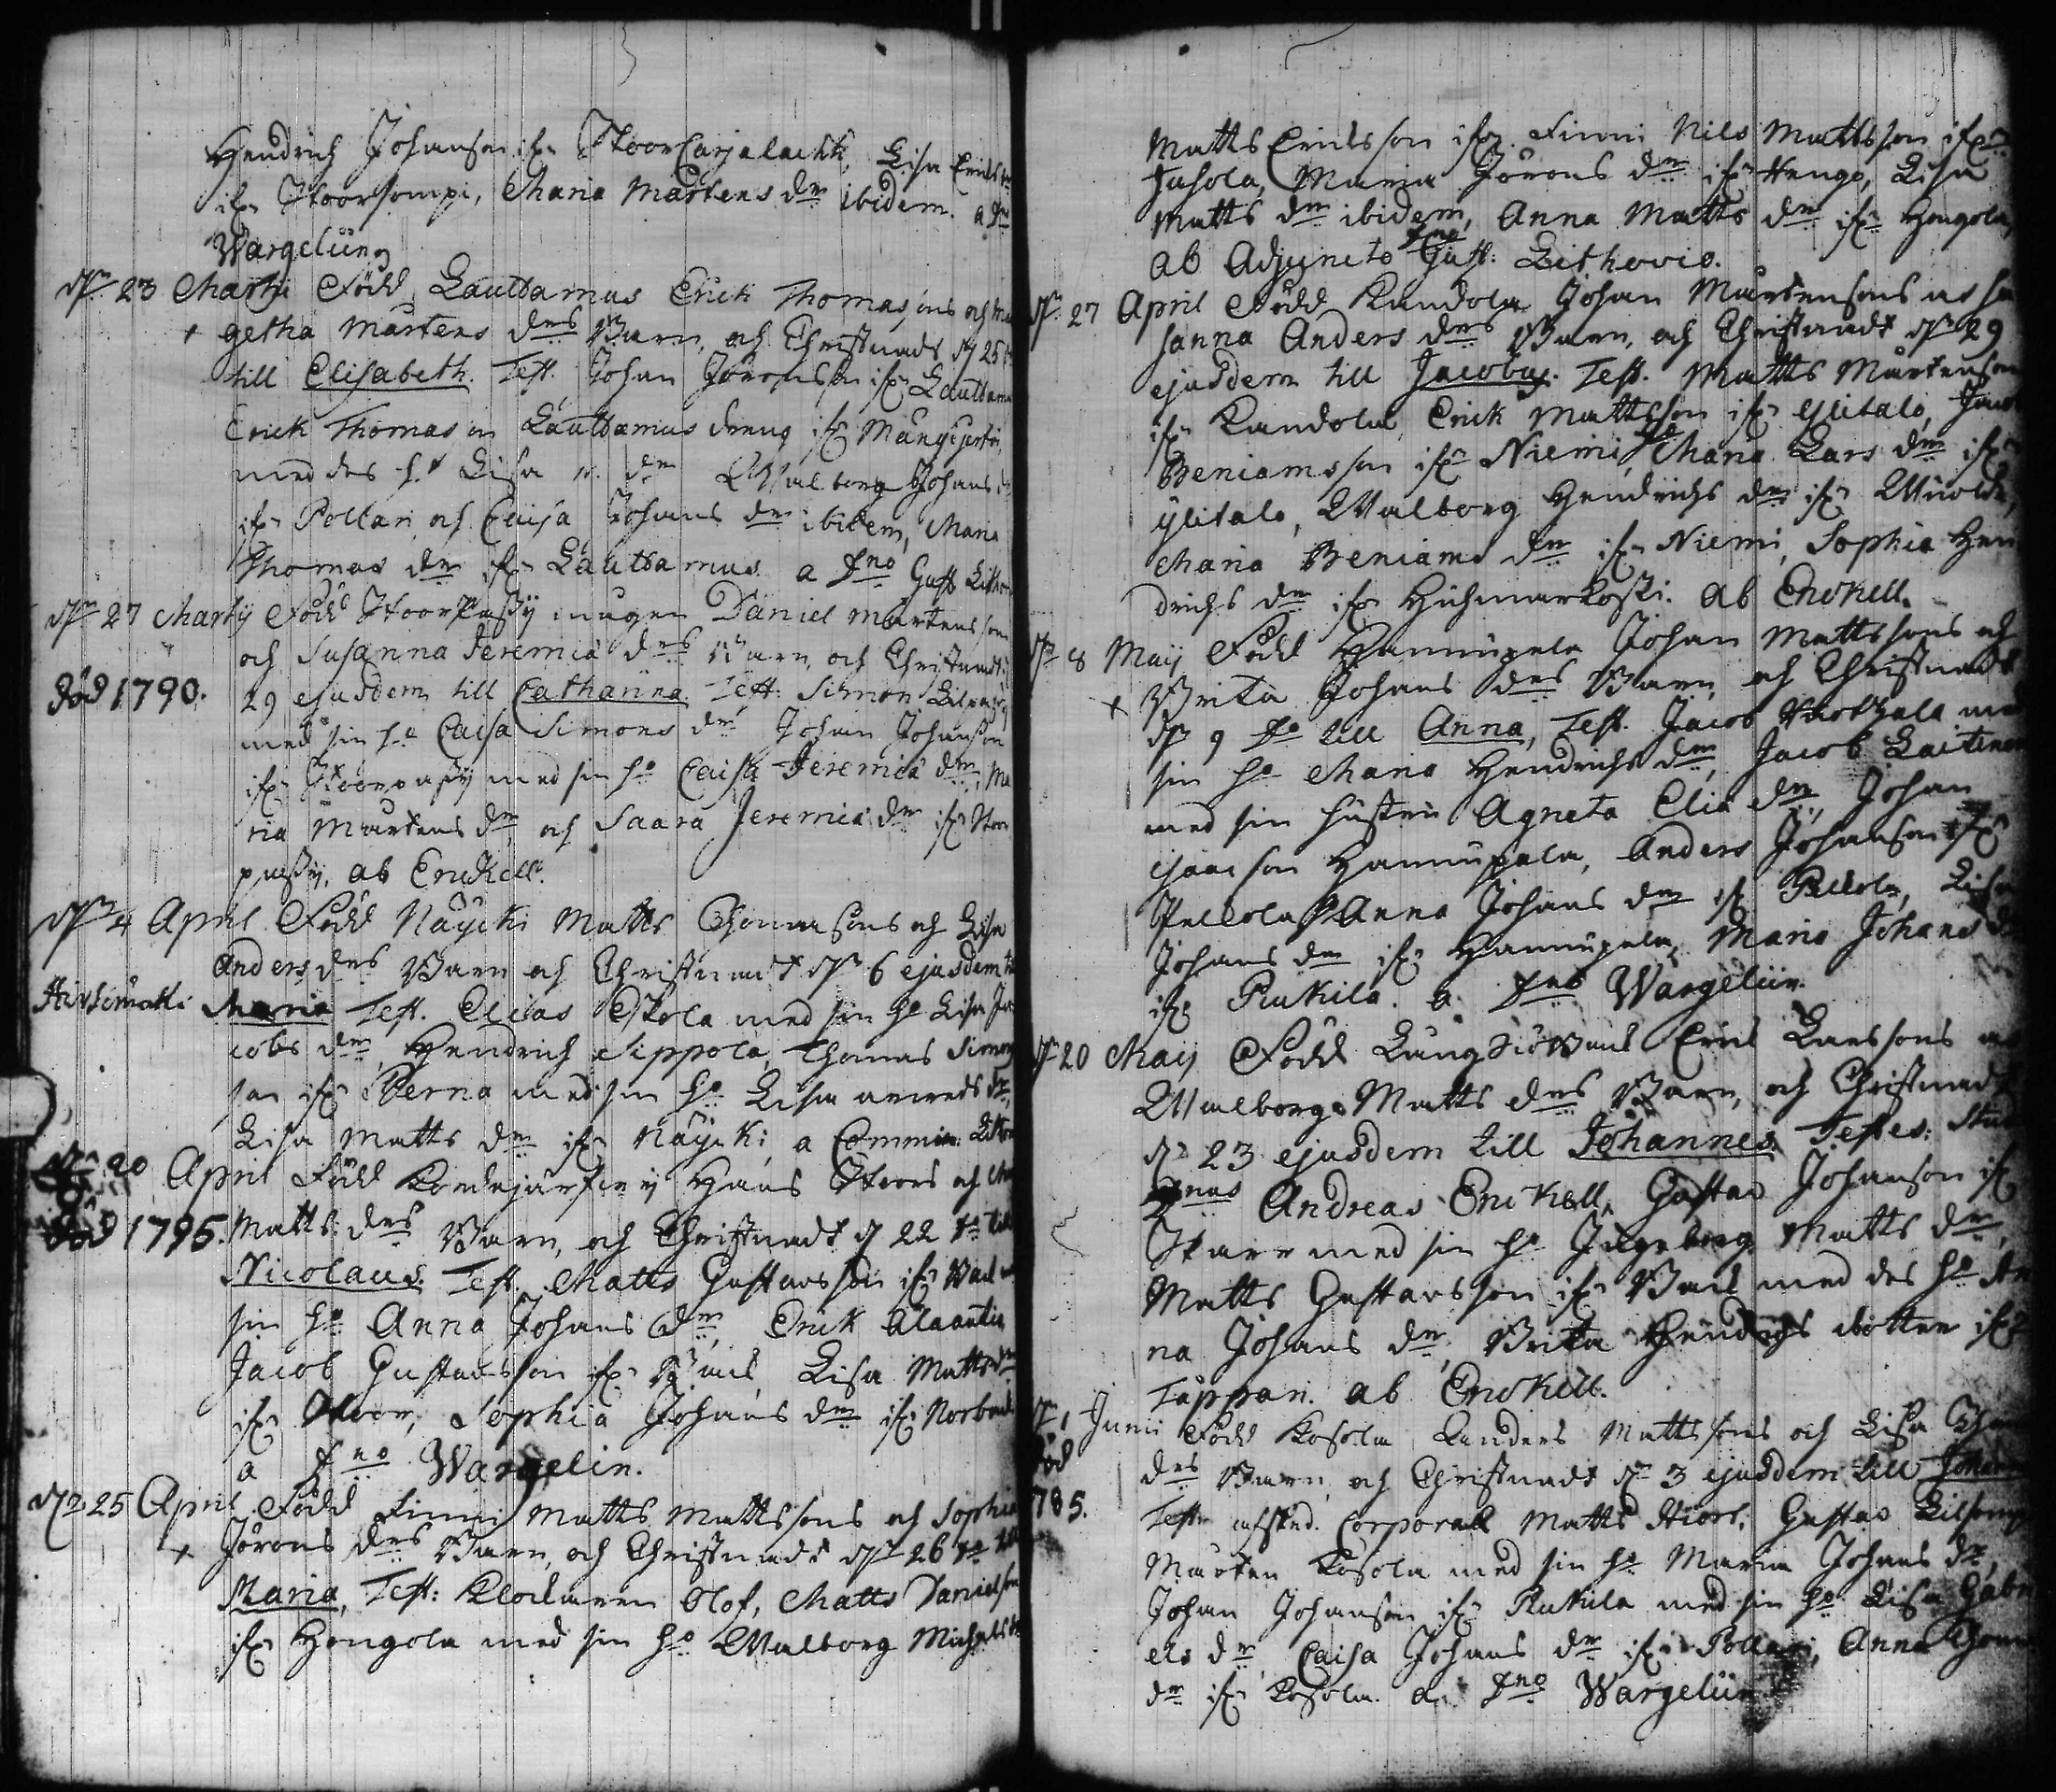 Hendrich Johanson ifr. Stoor Carjalachti, Lisa Ericks dr
ifr. Stoorsompi, Maria Mårtens dr ibidem. a Dno
Wargeliin
d. 23 Martii Född Lauttamus Erick Thomasons och Mar
+ getha Mårtens drs Barn, och Christnades d. 25
till Elisabeth. Test. Johan Jöransson ifr. Lauttamus
Erick Thomason Lauttamus dreng ifr.
med des h:u Lisa dr Wallborg Johans dr
ifr. Pollari och Caisa Johans dr ibidem, Maria
Thomas dr ifr. Lauttamus. a Dno Gust. Lithov
d. 27 Martij Född Stoorpassij mågen Daniel Mårtensons
och Susanna Jeremiæ drs Barn, och Christnades
död 1790. 29 ejusdem till Catharina. Test: Simon Lilpassij
med sin h:u Caisa Simons dr Johan Johanson
ifr. Stoorpassij med sin h:u Caisa Jeremiæ dr, Ma
ria Mårtens dr och Saara Jeremiæ dr ifr. Stoor
passij, ab Enckell.
d. 4 April Född Näycki Matts Thomasons och Lisa
Anders drs Barn och Christnadt d. 6 ejusdem till
Maria Test. Elias Skola med sin h:u Lisa Ja
cobs dr, Hendrich Sippola, Thomas Simons
son ifr. Perna med sin h:u Lisa dr,
Lisa Matts dr ifr. Näycki, a Commin: Lithov
d. 20 April Född Kordesjärfvij Hans Stoors och
död 1795. Matts drs Barn, och Christnadt d. 22 do till
Nicolaus. Test. Matts Gustavsson ifr. Back med
sin h:u Anna Johans dr, Erick Alaantila
Jacob Gustavsson ifr. Lisa Matts dr
ifr. Stoor, Sophia Johans dr ifr. Norback
a Dno Wargelin.
d. 25 April Född Finni Matts Mattssons och Sophia
+ Jörans drs Barn, och Christnadt d. 26 do till
Maria, Test: Klockaren Olof, Matts Danielson
ifr. Hongola med sin h:u Wallborg Michels dr
Matts Ericksson ifr. Finni Nils Mattsson ifr.
Jusola, Maria Jörans dr ifr. Hengo, Lisa
Matts dr ibidem, Anna Matts dr ifr. Hongola,
ab Adjuncto Dno Gust: Lithovio.
d. 27 April Född Kandola Johan Mårtensons och Su
sanna Anders drs Barn, och Christnadt d. 29
ejusdem till Jacobus. Test. Matts Mårtenson
ifr. Kandola, Erick Mattsson ifr. Ylitalo, Jacob
Beniamsson ifr. Niemi, Maria Lars dr ifr.
Ylitalo, Wallborg Hendrichs dr ifr.
Maria Beniams dr ifr. Niemi, Sophia Hen
drichs dr ifr. Huhmarkoski. ab Enckell.
d. 8 Maij Född Hannuxela Johan Mattssons och
+ Brita Johans drs Barn, och Christnadt
d. 9 do till Anna, Test. Jacob med
sin h:u Maria Hendrichs dr, Jacob Laitinen
med sin hustru Agneta Eliæ dr, Johan
Isaacson Hannuxela, Anders Johanson ifr.
Pelkola, Anna Johans dr ifr. Pelkola, Lisa
Johans dr ifr. Hannuxela, Maria Johans dr
ifr. Rukila. a Dno Wargeliin.
d. 20 Maij Född Långsiöback Erics Larssons och
Wallborg Matts drs Barn, och Christnadt
d. 23 ejusdem till Johannes. Testes: Stud
Dnus Andreas Enckell, Gustav Johanson ifr.
Skare med sin h:u Ingeborg Matts dr,
Matts Gustavsson ifr. Back med des h:u An
na Johans dr, Brita Hendrichs dotter ifr.
Tåppari. ab Enckell.
d. 1 Junii Född Kosola Anders Mattssons och Lisa Thom
död drs Barn, och Christnadt d. 3 ejusdem till Johannes
1785. Test. afsked. Corporal Matts Hiort, Gustav Lilsompi
Mårten Kosola med sin h:u Maria Johans dr,
Johan Johanson ifr. Rukila med sin h:u Lisa Gabri
els dr Caisa Johans dr ifr. Pollari, Anna Thom
dr ifr. Kosola. a Dno Wargeliin